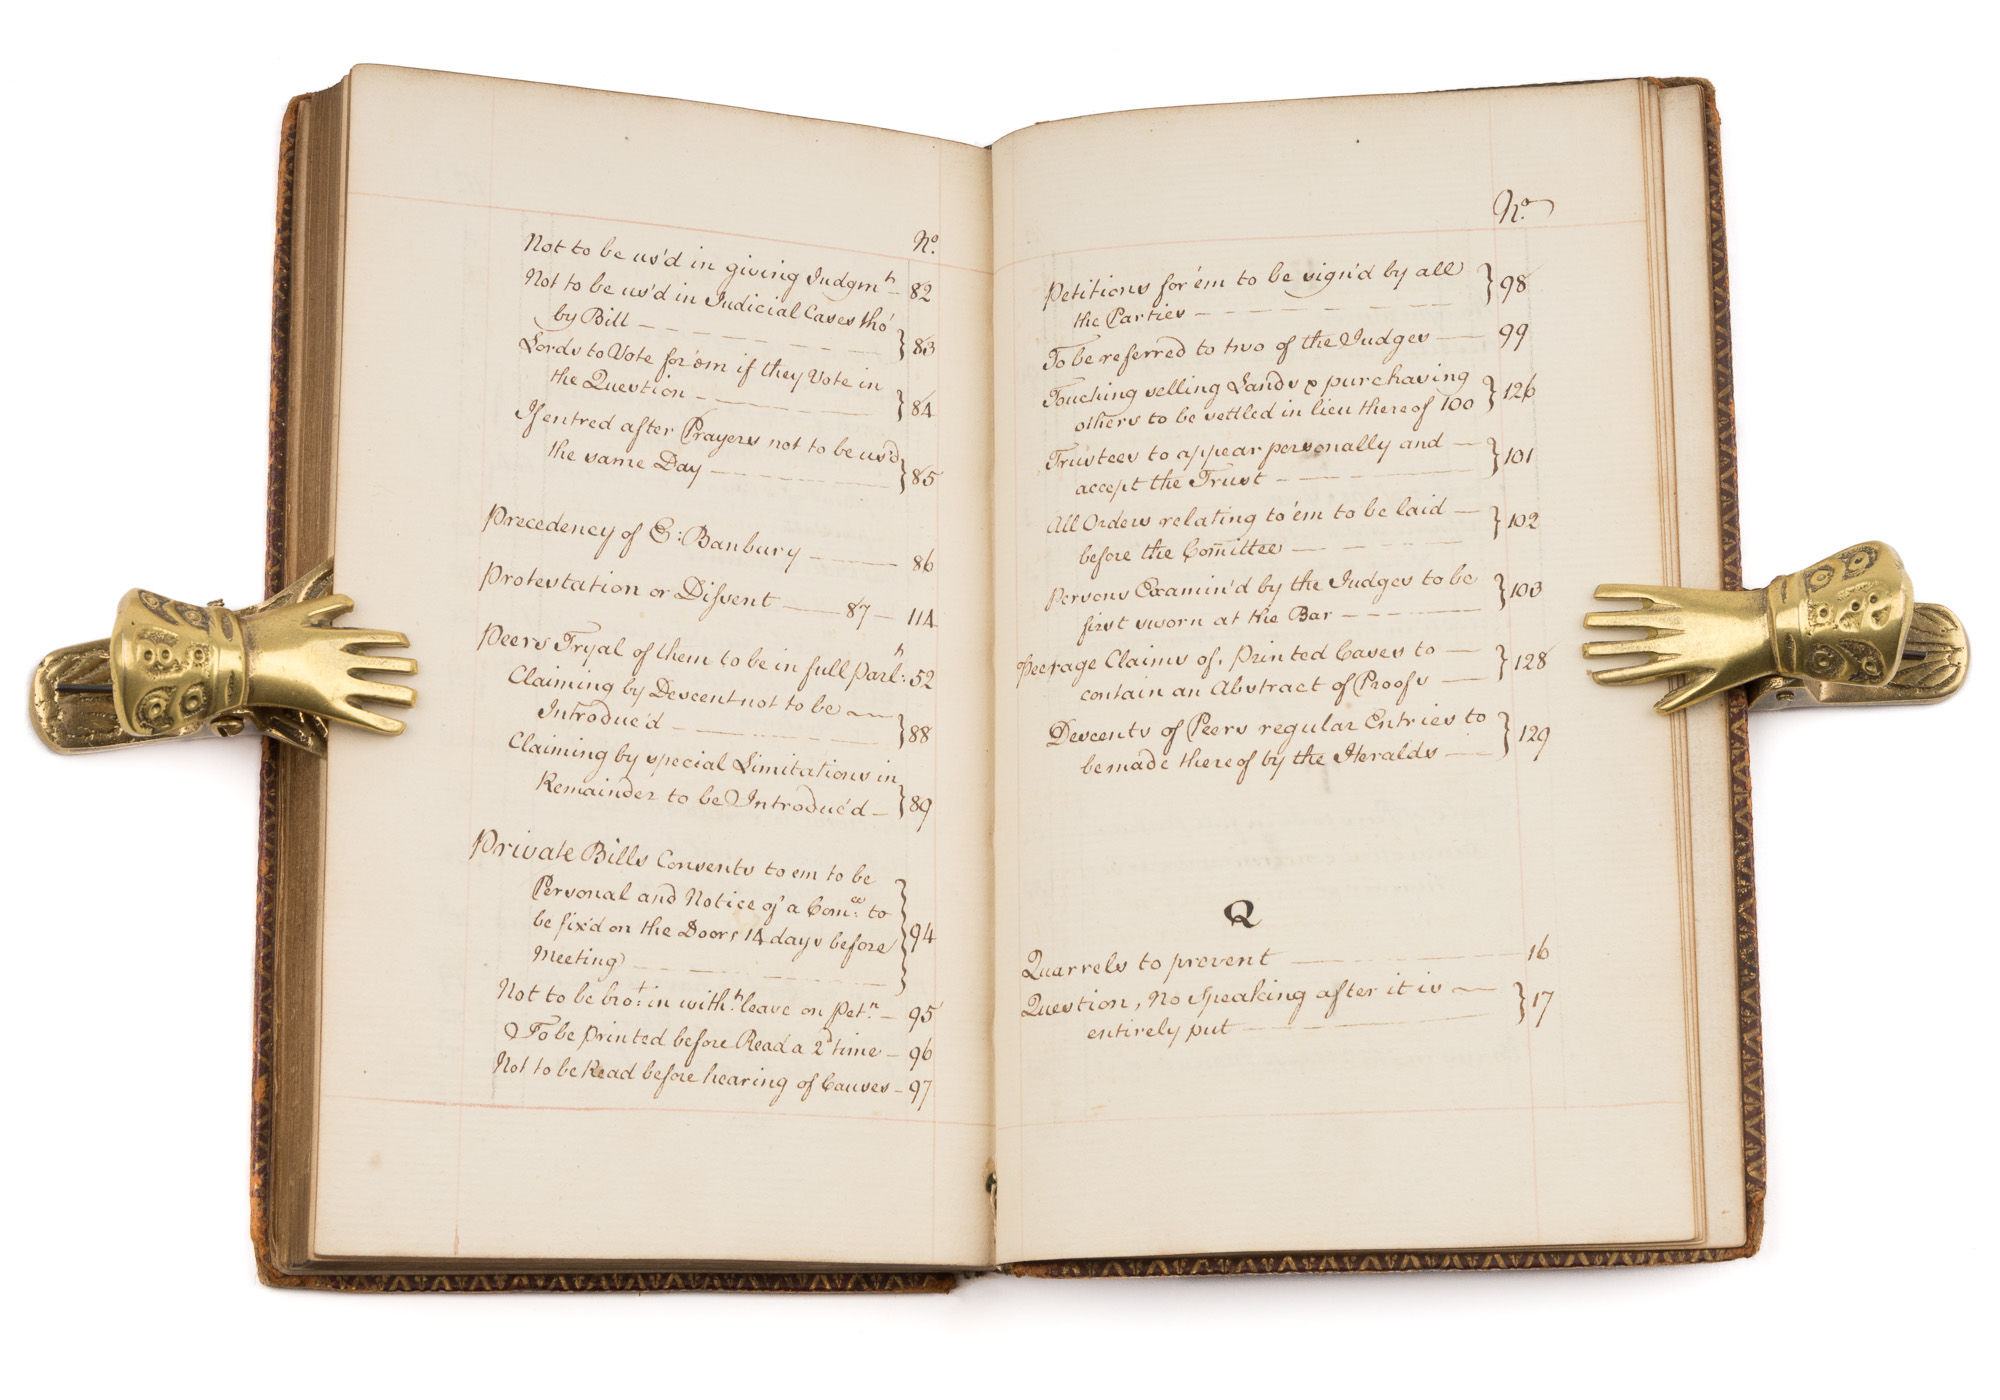 No.
Not to be us'd in giving Judgmt. — 82
Not to be us'd in Judicial Cases tho'
by Bill — } 83
Lords to Vote for'em if they Vote in
the Question — } 84
If entred after Prayers not to be us'd
the same Day — } 85
Precedency of E: Banbury — 86
Protestation or Dissent — 87 — 114
Peers Tryal of them to be in full Parlt: 52
Claiming by Descent not to be —
Introduc'd — } 88
Claiming by special Limitations in
Remainder to be Introduc'd — } 89
Private Bills Consents to em to be
Personal and Notice of a Comee: to
be fix'd on the Doors 14 days before } 94
Meeting —
Not to be brot: in witht. leave on Petn. — 95
To be printed before Read a 2d time — 96
Not to be Read before hearing of Causes — 97
No.
Petitions for'em to be sign'd by all
the Parties — } 98
To be referred to two of the Judges — 99
Touching selling Lands & purchasing
others to be settled in lieu thereof 100 } 126
Trustees to appear personally and —
accept the Trust — } 101
All Orders relating to'em to be laid —
before the Comittee — } 102
Persons Examin'd by the Judges to be
first sworn at the Bar — } 103
Peerage Claims of, Printed Cases to —
contain an Abstract of Proofs — } 128
Descents of Peers regular Entries to
be made thereof by the Heralds — } 129
Q
Quarrels to prevent — 16
Question, No speaking after it is —
entirely put — } 17